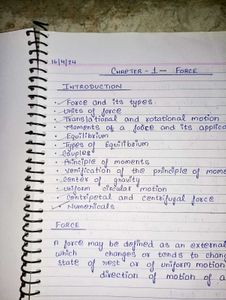 16/4/24
CHAPTER - 1 - FORCE
INTRODUCTION
Force and its types.
Units of force
Translational and rotational motion
Moments of a force and its applica
Equilibrium
Types of Equilibrium
Couples
Principle of moments
Verification of the principle of mome
Center of gravity
Uniform circular motion
Centripetal and centrifugal force
Numericals
FORCE
A force may be defined as an external
which changes or tends to chang
state of rest or of uniform motion
direction of motion of a